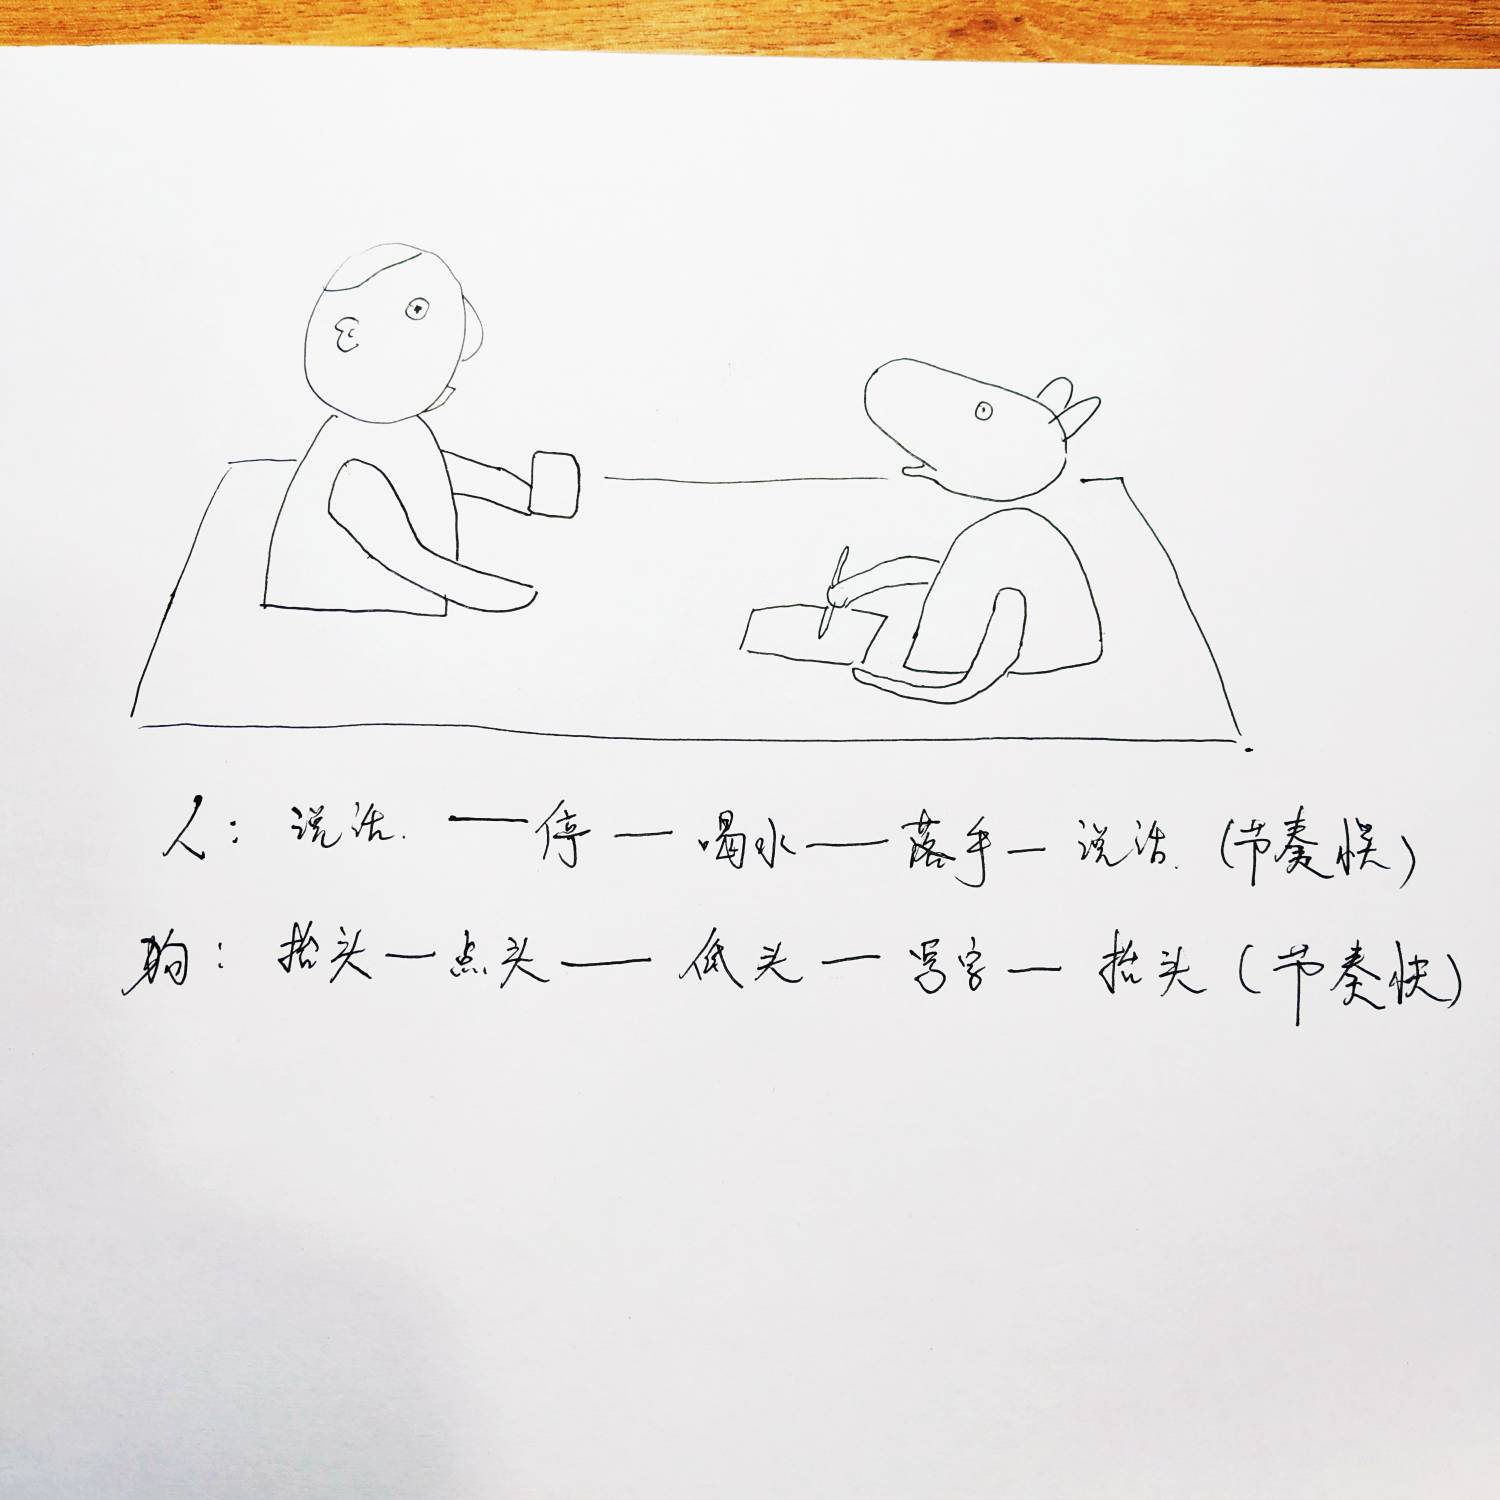 人：说话.——停—喝水——落手—说话.(节奏慢)
狗：抬头—点头——低头—写字—抬头(节奏快)